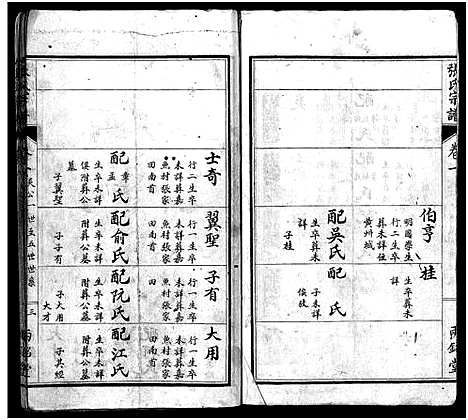 張氏宗譜
卷一
伯亨
明國學生
行二生卒
未詳葬
黃州城
配吳氏
生卒葬未
詳
子桂
桂
生卒葬未
詳
配 氏
子未詳
俟考
士奇
行二生卒
未詳葬嘉
魚村張家
田南首
配 氏
生卒未詳
俱附葬公
墓
子翼聖
翼聖
行一生卒
未詳葬嘉
魚村張家
田南首
配俞氏
生卒未詳
附葬公墓
子子有
子有
行一生卒
未詳葬嘉
魚村張家
田南首
配阮氏
生卒未詳
附葬公墓
子大用
大才
大用
行一生卒
未詳葬嘉
魚村張家
田南首
配江氏
生卒未詳
附葬公墓
子其經
世至五世世系
三